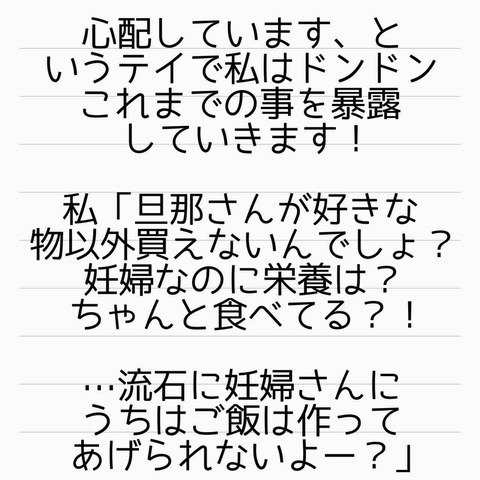 心配しています、と
いうテイで私はドンドン
これまでの事を暴露
していきます！
私「旦那さんが好きな
物以外買えないんでしょ？
妊婦なのに栄養は？
ちゃんと食べてる？！
…流石に妊婦さんに
うちはご飯は作って
あげられないよー？」